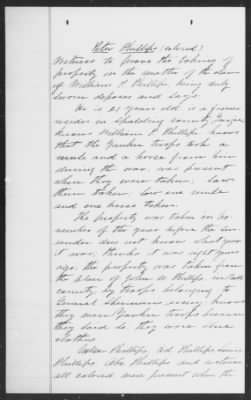 Peter Phillips (colored)
Witness to prove the taking of
property in the matter of the claim
of William P. Phillips, being duly
sworn deposes and says
He is 21 years old, is a farmer
resides in Spalding County, Georgia
Knows William P Phillips knows
that the Yankee troops took a
mule and a horse from him
during the war, was present
when they were taken, saw
them taken, saw one mule
and one horse taken.
The property was taken in No-
vember of the year before the sur-
render does not know what year
it was, thinks it was eight years
ago. The property was taken from
the place of John Phillips
county, by troops belonging to
General Shermans army, knows
they were Yankee troops because
they said so they wore blue
clothes
Phillips, Ad Phillips
Phillips Abe Phillips and witness
all colored were present when the